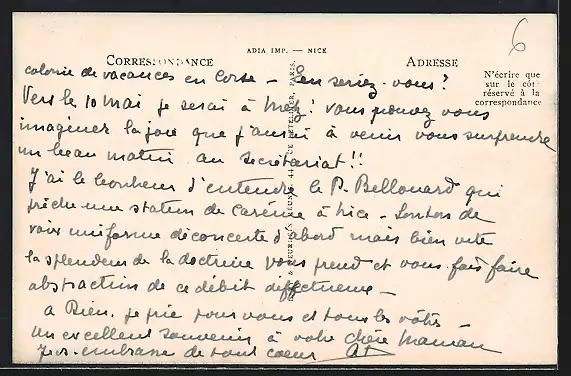 6
ADIA IMP. — NICE
CORRESPONDANCE
ADRESSE
N'écrire que
sur le côté
réservé à la
correspondance
colonie de vacances en Corse – En seriez-vous ?
Vers le 10 Mai je serai à Metz ! vous pouvez vous
imaginer la joie que j'aurai à venir vous surprendre
un beau matin au Secrétariat !!
J'ai le bonheur d'entendre le P. Bellouard qui
prêche une station de Carême à Nice – Son ton de
voix uniforme déconcerte d'abord mais bien vite
la splendeur de la doctrine vous prend et vous fait faire
abstraction de ce débit défectueux –
A Bien, je prie pour vous et tous les vôtres –
Un excellent souvenir à votre chère Maman
Je vs. embrasse de tout coeur